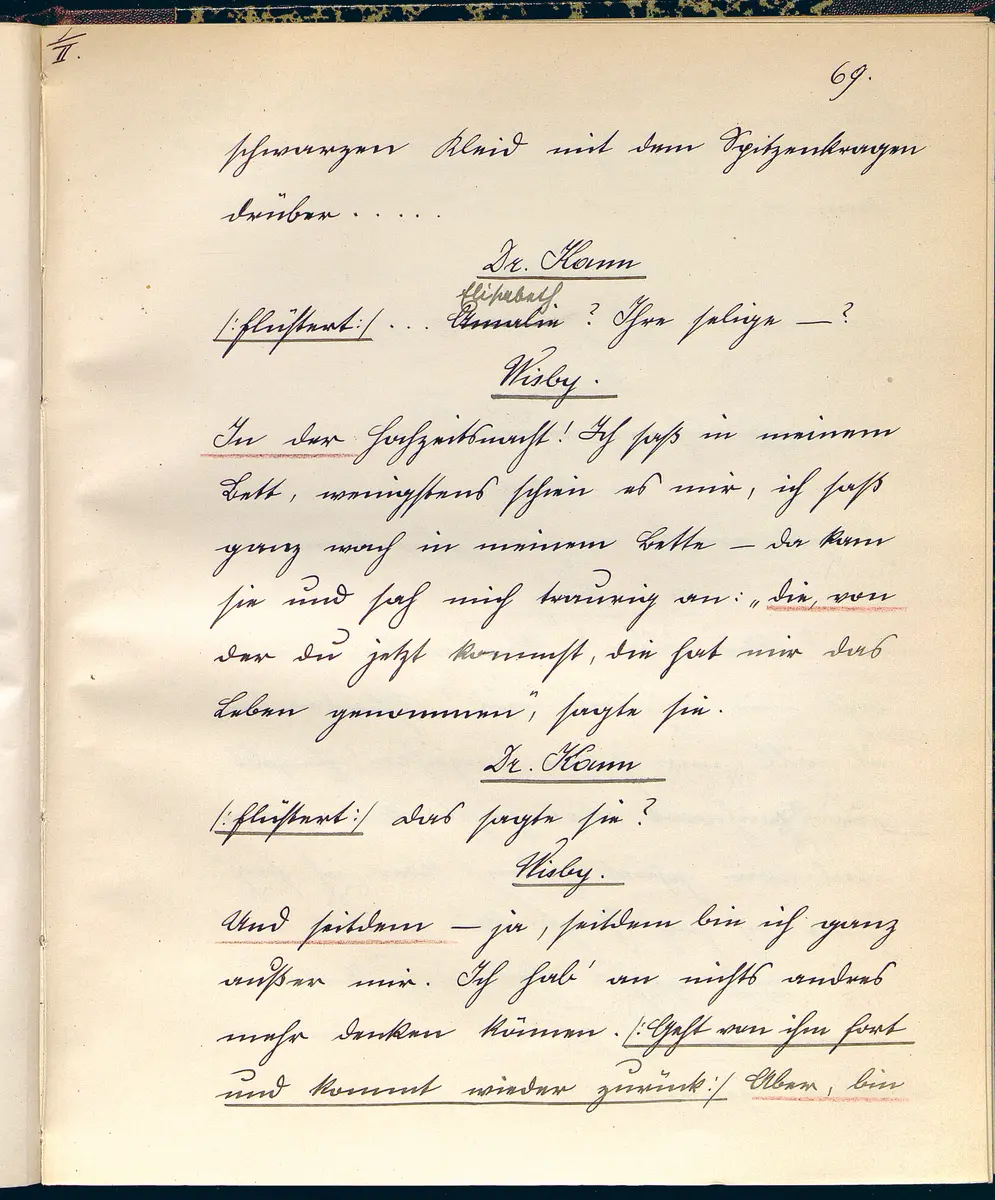 I/II.
69.
schwarzen Kleid mit dem Spitzenkragen
drüber . . . . .
Dr. Hann
Elisabeth
/:flüstert:/ . . . Amalie ? Ihre selige — ?
Wisby.
In der Hochzeitsnacht! Ich saß in meinem
Bett, wenigstens schien es mir, ich saß
ganz wach in meinem Bette — da kam
sie und sah mich traurig an: „die, von
der du jetzt kommst, die hat mir das
Leben genommen", sagte sie.
Dr. Hann
/:flüstert:/ das sagte sie?
Wisby.
Und seitdem — ja, seitdem bin ich ganz
außer mir. Ich hab' an nichts andres
mehr denken können. /:Geht von ihm fort
und kommt wieder zurück:/ Aber, bin